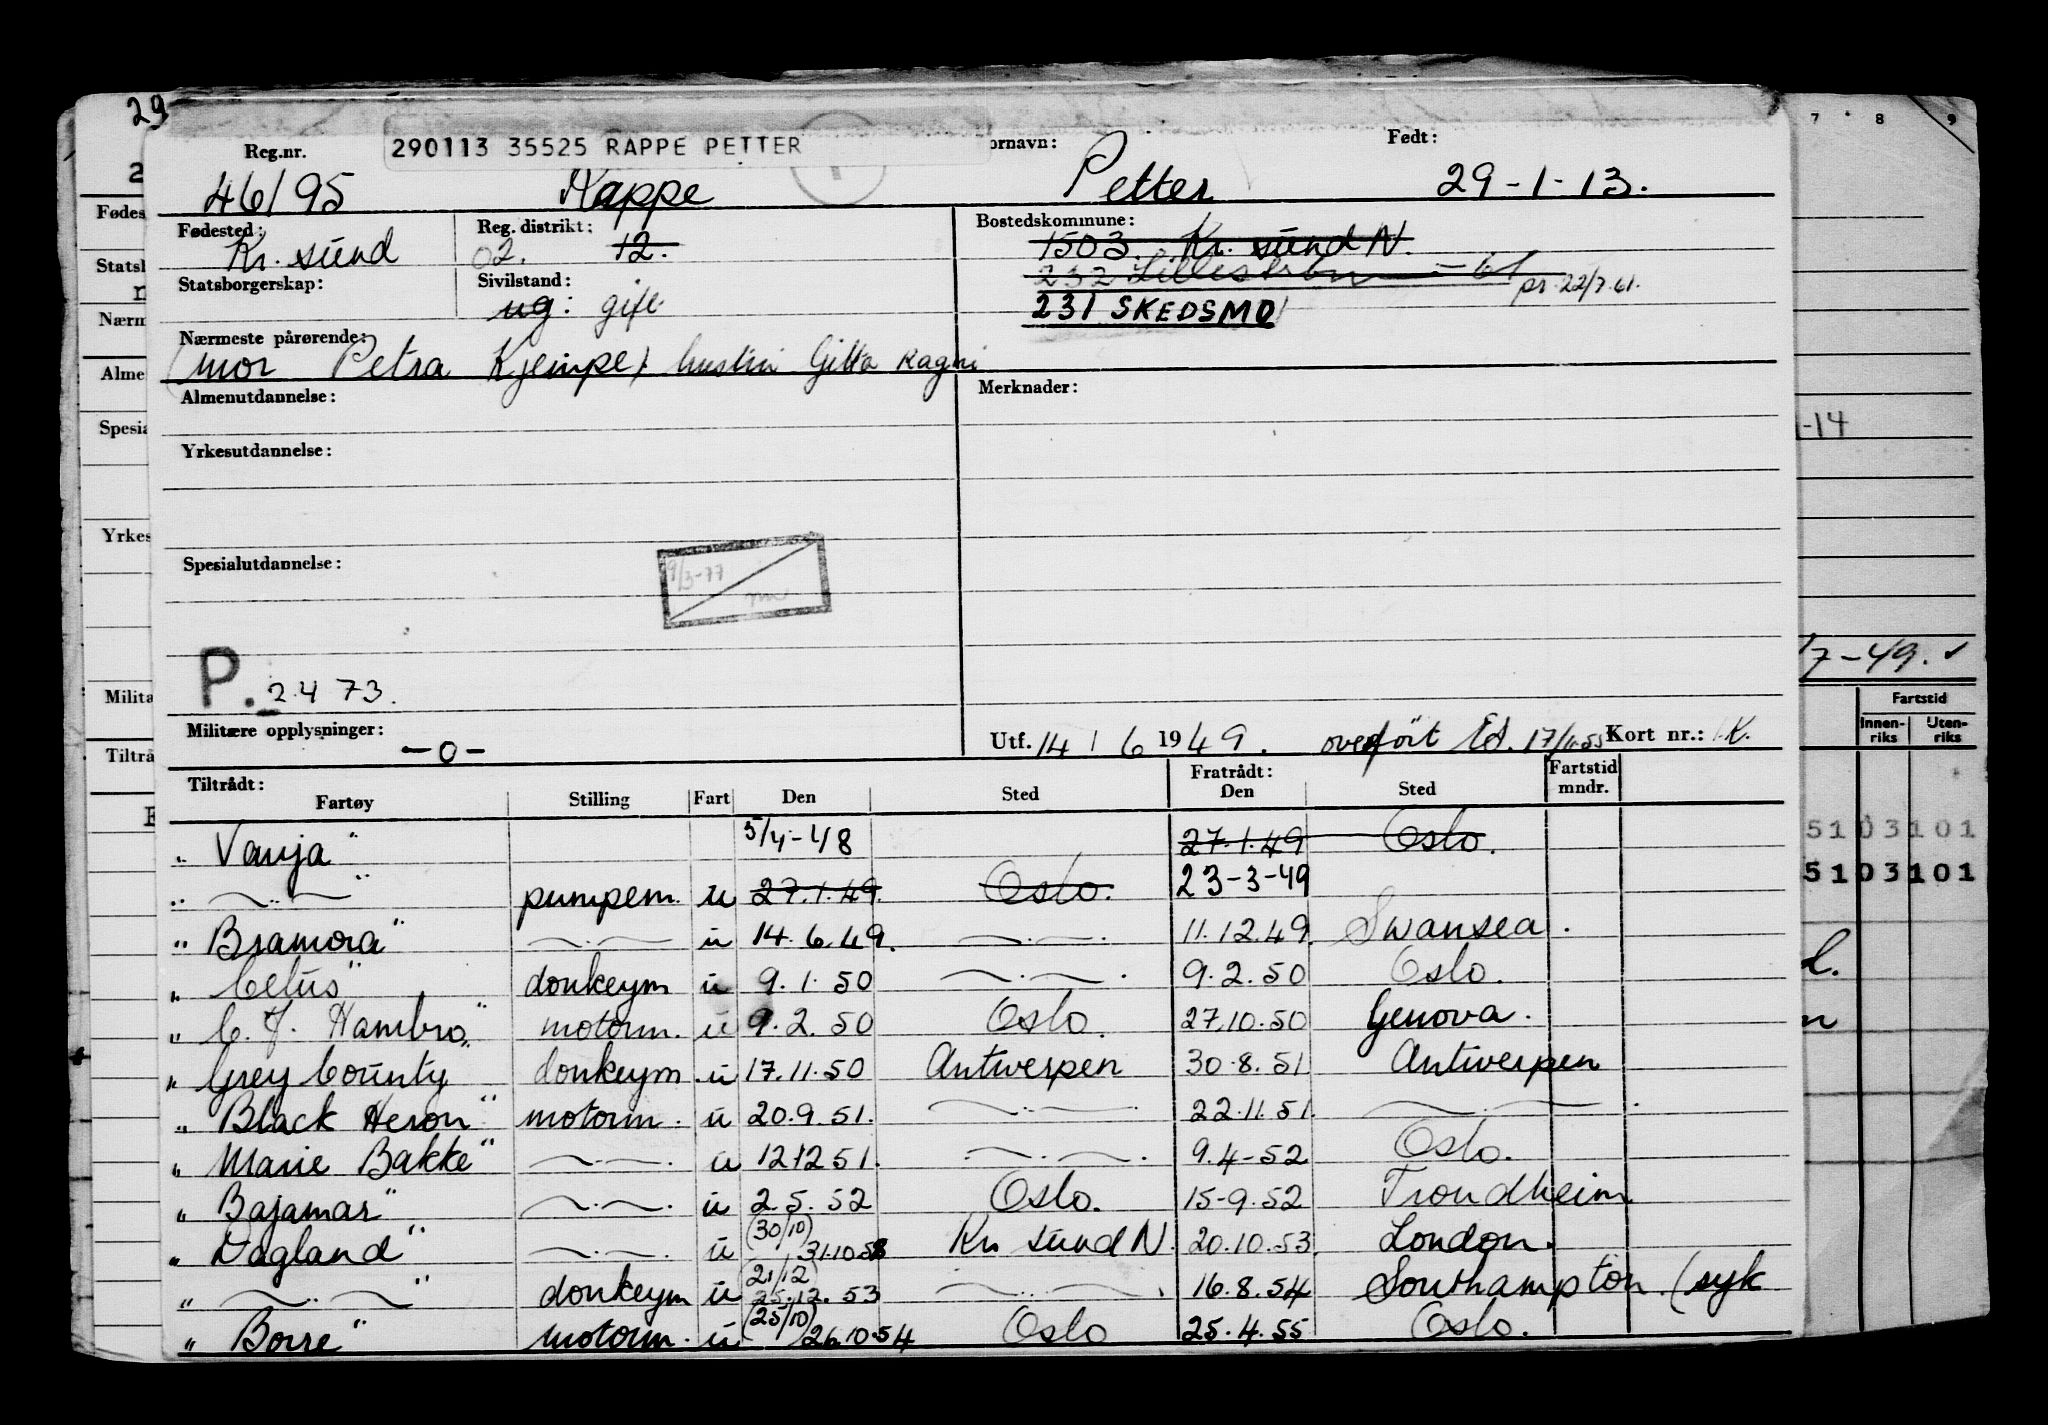 29
7 8 9
290113 35525 RAPPE PETTER
Reg.nr. ornavn: Født:
46195 Rappe Petter 29-1-13.
Fødested: Reg. distrikt: Bostedskommune:
Kr. sund 02. 12. 1503. Kr. sund N.
232 Lillestrøm - 61 pr. 22/7.61.
Statsborgerskap: Sivilstand:
ug: gift. 231 SKEDSMO
Nærmeste pårørende:
(mor Petra Kjempe) hustru Gitta Ragni
Almenutdannelse: Merknader:
-14
Yrkesutdannelse:
Spesialutdannelse:
9/3-77
P. 2473.
7-49.
Militære opplysninger: -0- Utf. 14 / 6 1949. overført Ed. 17/11-55 Kort nr.: K.
Fartstid
Innen-riks Uten-riks
Tiltrådt: Fratrådt: Fartstid
Fartøy Stilling Fart Den Sted Den Sted mndr.
" Vanja" 5/4-48 27.1.49 Oslo.
" —..— " pumpem. u 27.1.49. Oslo. 23-3-49
" Bramora" —.— u 14.6.49. —.— 11.12.49. Swansea.
" Cetus" donkeym u 9.1.50 —.— 9.2.50 Oslo.
" C. J. Hambro" motorm. u 9.2.50 Oslo. 27.10.50 Genova.
" Grey County donkeym. u 17.11.50 Antwerpen 30.8.51 Antwerpen
" Black Heron" motorm. u 20.9.51. —.— 22.11.51. —.—
" Marie Bakke" —.— u 12.12 51. —.— 9.4-52 Oslo.
" Bajamar" —.— u 2.5.52 Oslo. 15-9.52 Trondheim
" Dagland" —.— u (30/10) 31.10.58 Kr. sund N. 20.10.53. London.
" —..— " donkeym u (21/12) 25.12.53 —.— 16.8.54 Southampton. (syk
" Borre" motorm. u (25/10) 26.10.54 Oslo 25.4.55 Oslo.